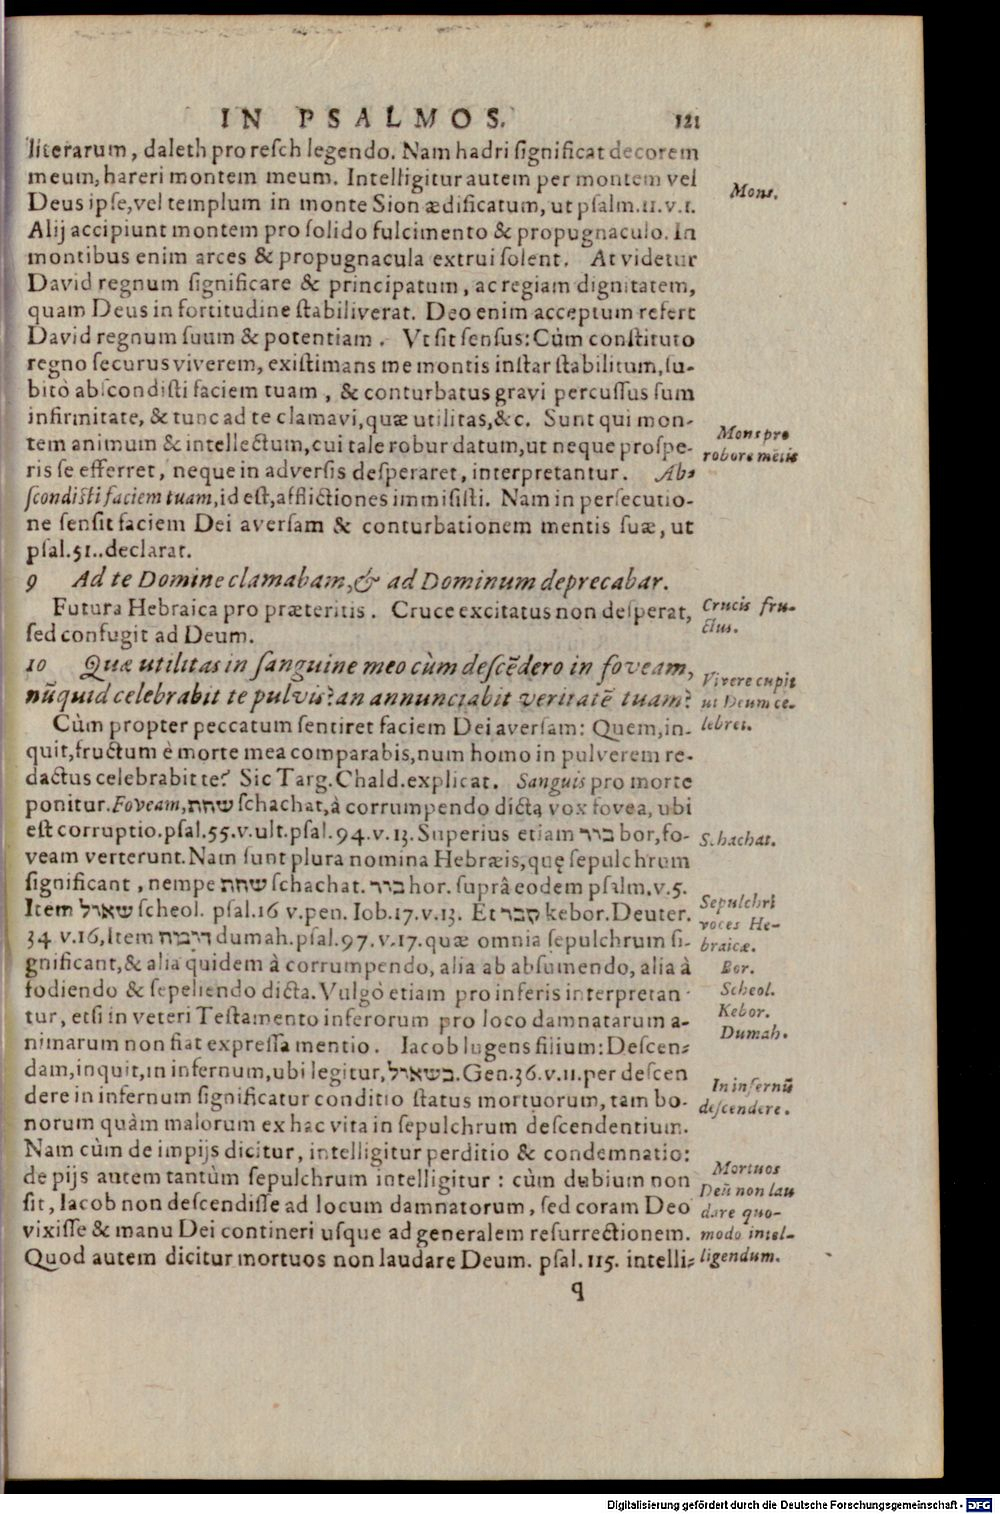 IN PSALMOS. 121
literarum, daleth pro resch legendo. Nam hadri significat decorem
meum, hareri montem meum. Intelligitur autem per montem vel
Deus ipse, vel templum in monte Sion ædificatum, ut psalm. 11. v. 1.
Mons.
Alij accipiunt montem pro solido fulcimento & propugnaculo. In
montibus enim arces & propugnacula extrui solent. At videtur
David regnum significare & principatum, ac regiam dignitatem,
quam Deus in fortitudine stabiliverat. Deo enim acceptum refert
David regnum suum & potentiam. Vt sit sensus: Cùm constituto
regno securus viverem, existimans me montis instar stabilitum, su-
bitò abscondisti faciem tuam, & conturbatus gravi percussus sum
infirmitate, & tunc ad te clamavi, quæ utilitas, &c. Sunt qui mon-
tem animum & intellectum, cui tale robur datum, ut neque prospe-
Mons pro
robore mētis
ris se efferret, neque in adversis desperaret, interpretantur. Ab-
scondisti faciem tuam, id est, afflictiones immisisti. Nam in persecutio-
ne sensit faciem Dei aversam & conturbationem mentis suæ, ut
psal. 51.. declarat.
9 Ad te Domine clamabam, & ad Dominum deprecabar.
Futura Hebraica pro præteritis. Cruce excitatus non desperat,
sed confugit ad Deum.
Crucis fru-
ctus.
10 Quæ utilitas in sanguine meo cùm descēdero in foveam,
nūquid celebrabit te pulvis? an annunciabit veritatē tuam?
Vivere cupit
ut Deum ce-
lebret.
Cùm propter peccatum sentiret faciem Dei aversam: Quem, in-
quit, fructum è morte mea comparabis, num homo in pulverem re-
dactus celebrabit te? Sic Targ. Chald. explicat. Sanguis pro morte
ponitur. Foveam, שחת schachat, à corrumpendo dictą vox fovea, ubi
est corruptio. psal. 55. v. ult. psal. 94. v. 13. Superius etiam בור bor, fo-
Schachat.
veam verterunt. Nam sunt plura nomina Hebræis, quę sepulchrum
significant, nempe שחת schachat. בור hor. suprâ eodem psalm. v. 5.
Item שאול scheol. psal. 16 v. pen. Iob. 17. v. 13. Et קבר kebor. Deuter.
Sepulchri
voces He-
braicæ.
34 v. 16, Item דומה dumah. psal. 97. v. 17. quæ omnia sepulchrum si-
gnificant, & alia quidem à corrumpendo, alia ab absumendo, alia à
Bor.
fodiendo & sepeliendo dicta. Vulgò etiam pro inferis interpretan-
Scheol.
Kebor.
tur, etsi in veteri Testamento inferorum pro loco damnatarum a-
Dumah.
nimarum non fiat expressa mentio. Iacob lugens filium: Descen-
dam, inquit, in infernum, ubi legitur, בשאול. Gen. 36. v. 11. per descen
dere in infernum significatur conditio status mortuorum, tam bo-
In infernū
descendere.
norum quàm malorum ex hac vita in sepulchrum descendentium.
Nam cùm de impijs dicitur, intelligitur perditio & condemnatio:
de pijs autem tantùm sepulchrum intelligitur: cùm dubium non
sit, Iacob non descendisse ad locum damnatorum, sed coram Deo
vixisse & manu Dei contineri usque ad generalem resurrectionem.
Quod autem dicitur mortuos non laudare Deum. psal. 115. intelli-
Mortuos
Deū non lau
dare quo-
modo intel-
ligendum.
q
Digitalisierung gefördert durch die Deutsche Forschungsgemeinschaft - DFG